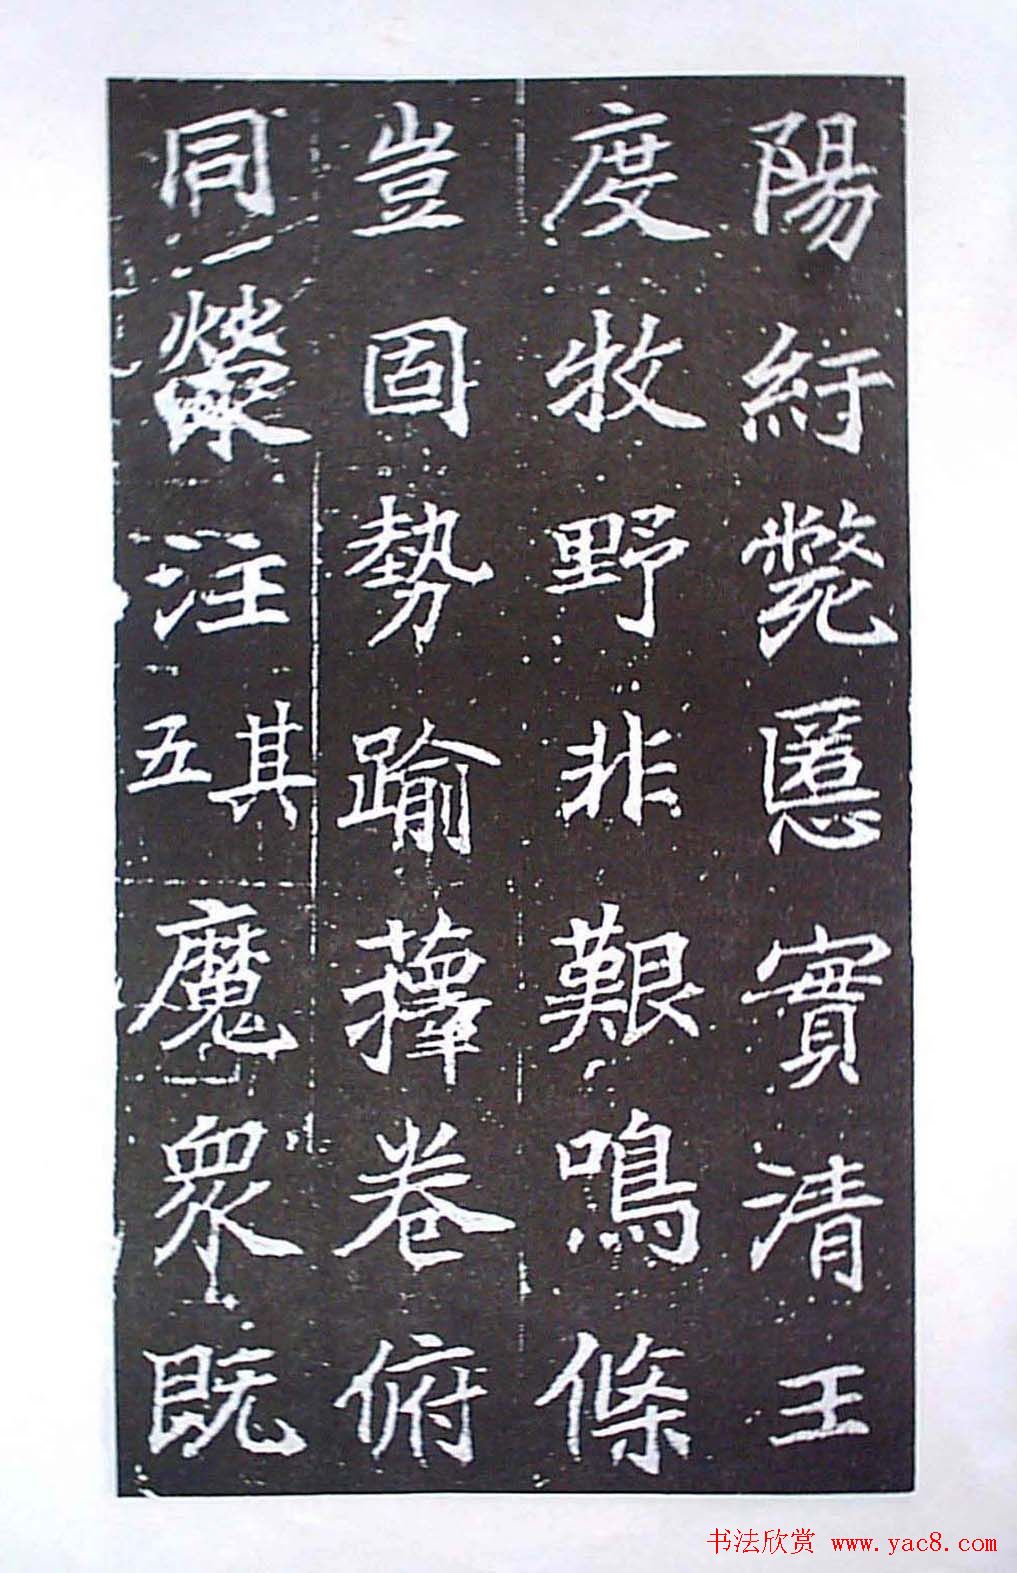 陽紆斃慝實清王
度牧野非艱鳴條
豈固勢踰蘀卷俯
同注其五魔眾既
书法欣赏 www.yac8.com